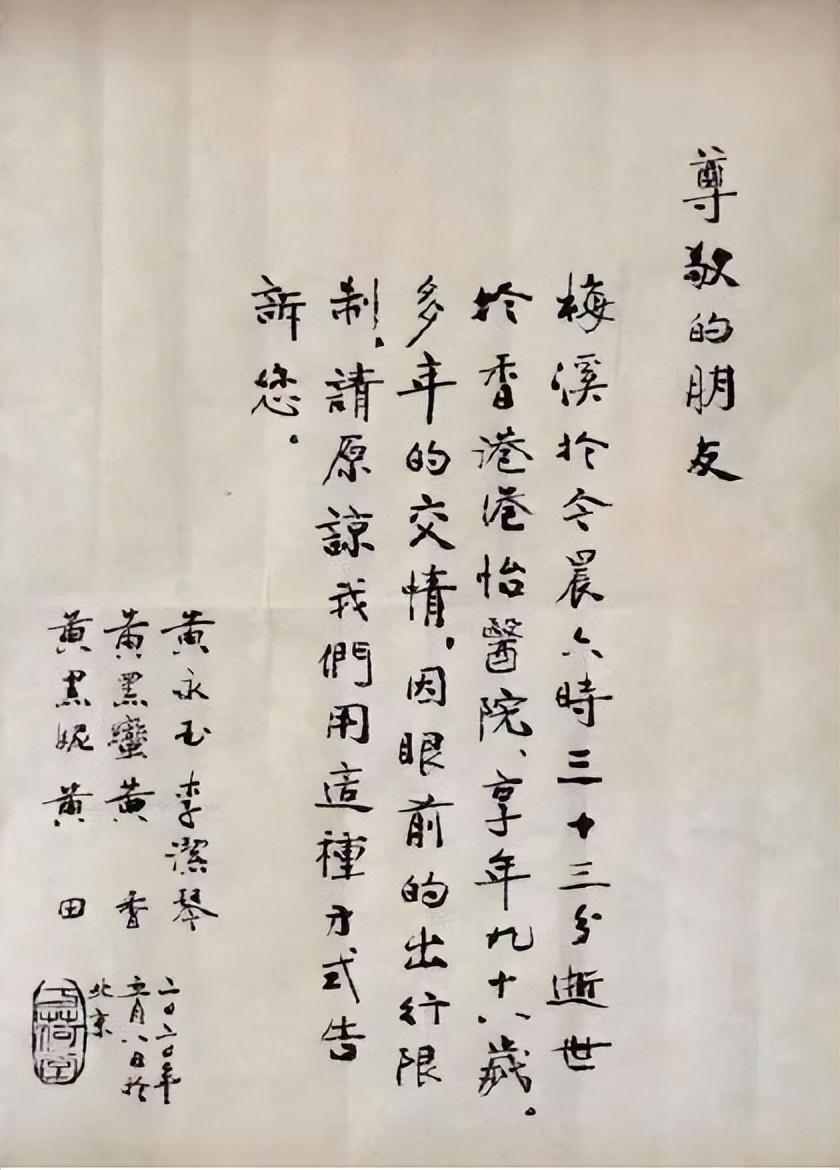 尊敬的朋友
梅溪於今晨六時三十三分逝世
於香港港怡醫院、享年九十八歲。
多年的交情。因眼前的出行限
制、請原諒我們用這種方式告
訴您。
黃永玉 李潔琴
黃黑蠻 黃香
黃黑妮 黃田
二〇二〇年
五月八日於
北京